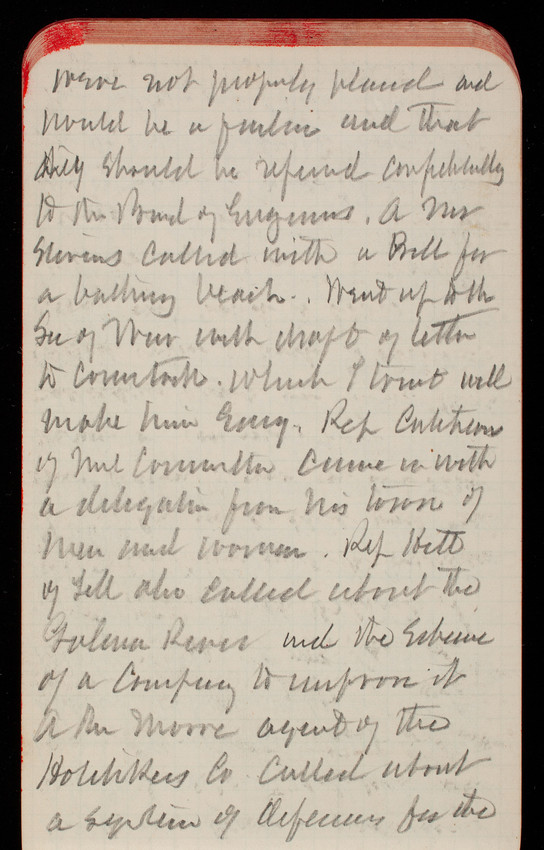 were not properly placed and
would be a failure and that
they should be referred confidentially
to the Board of Engineers. A Mr
Stevens called with a Bill for
a bathing beach. Went up to the
Sec of War with draft of letter
to Comstock. Which I trust will
make him Easy. Rep Cutcheon
of Mil Committee came in with
a delegation from his town of
men and women. Rep Hitt
of Ill also called about the
Galena River and the Scheme
of a Company to improve it
A Mr Moore agent of the
Hotchkiss Co called about
a system of defenses for the